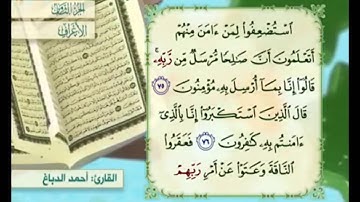 الجزء الثامن
الأعراف
ٱسْتُضْعِفُوا۟ لِمَنْ ءَامَنَ مِنْهُمْ
أَتَعْلَمُونَ أَنَّ صَٰلِحًا مُّرْسَلٌ مِّن رَّبِّهِۦ ۚ
قَالُوٓا۟ إِنَّا بِمَآ أُرْسِلَ بِهِۦ مُؤْمِنُونَ ٧٥
قَالَ ٱلَّذِينَ ٱسْتَكْبَرُوٓا۟ إِنَّا بِٱلَّذِىٓ
ءَامَنتُم بِهِۦ كَٰفِرُونَ ٧٦ فَعَقَرُوا۟
ٱلنَّاقَةَ وَعَتَوْا۟ عَنْ أَمْرِ رَبِّهِمْ
القارئ: أحمد الدباغ